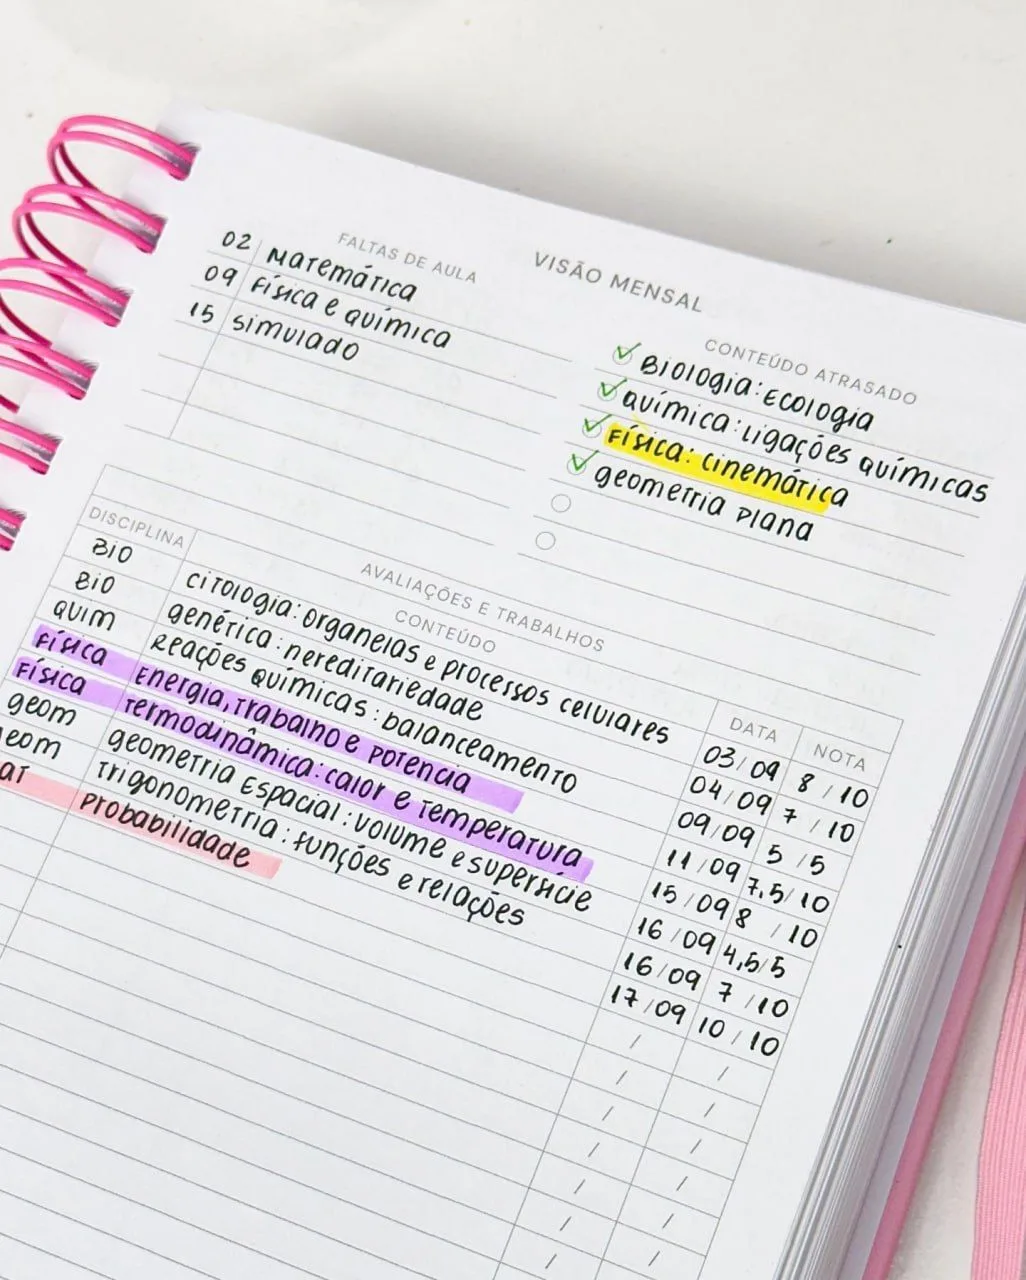 VISÃO MENSAL
FALTAS DE AULA
02 Matemática
09 Física e química
15 simulado
CONTEÚDO ATRASADO
Biologia: Ecologia
química: ligações químicas
Física: cinemática
geometria plana
AVALIAÇÕES E TRABALHOS
DISCIPLINA CONTEÚDO DATA NOTA
BIO citologia: organelas e processos celulares 03/09 8/10
BIO genética: hereditariedade 04/09 7/10
QUIM Reações químicas: balanceamento 09/09 5/5
Física Energia, trabalho e potencia 11/09 7,5/10
Física Termodinâmica: calor e temperatura 15/09 8/10
geom geometria Espacial: volume e superfície 16/09 4,5/5
eom trigonometria: funções e relações 16/09 7/10
at Probabilidade 17/09 10/10